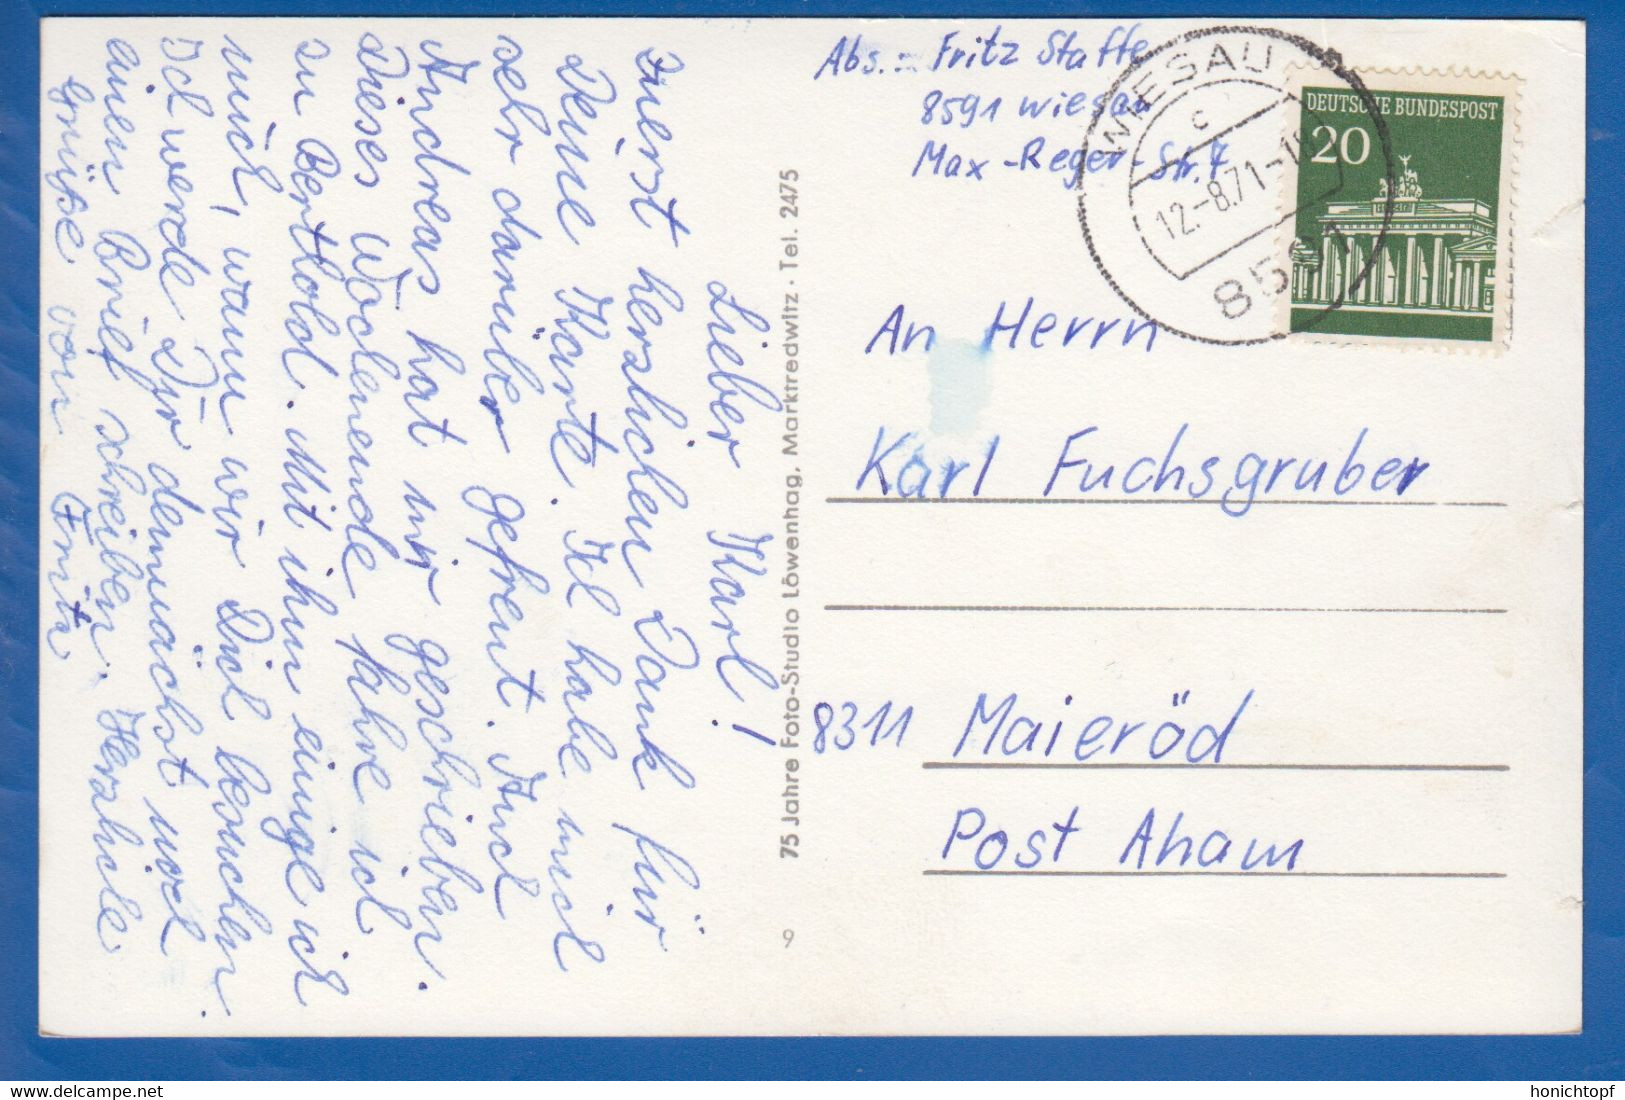 Lieber Karl!
Zuerst herzlichen Dank für
Deine Karte. Ich habe mich
sehr darüber gefreut. Auch
Andreas hat mir geschrieben.
Dieses Wochenende fahre ich
zu Berthold. Mit ihm einige ich
mich, wann wir Dich besuchen.
Ich werde Dir demnächst noch
einen Brief schreiben. Herzliche
Grüße von Fritz
75 Jahre Foto-Studio Löwenhag, Marktredwitz · Tel. 2475
9
Abs.: Fritz Staffe
8591 Wiesau
Max-Reger-Str. 7
WIESAU
c
12.-8.71-1
8591
DEUTSCHE BUNDESPOST
20
An Herrn
Karl Fuchsgruber
8311 Maieröd
Post Aham
honichtopf
www.delcampe.net